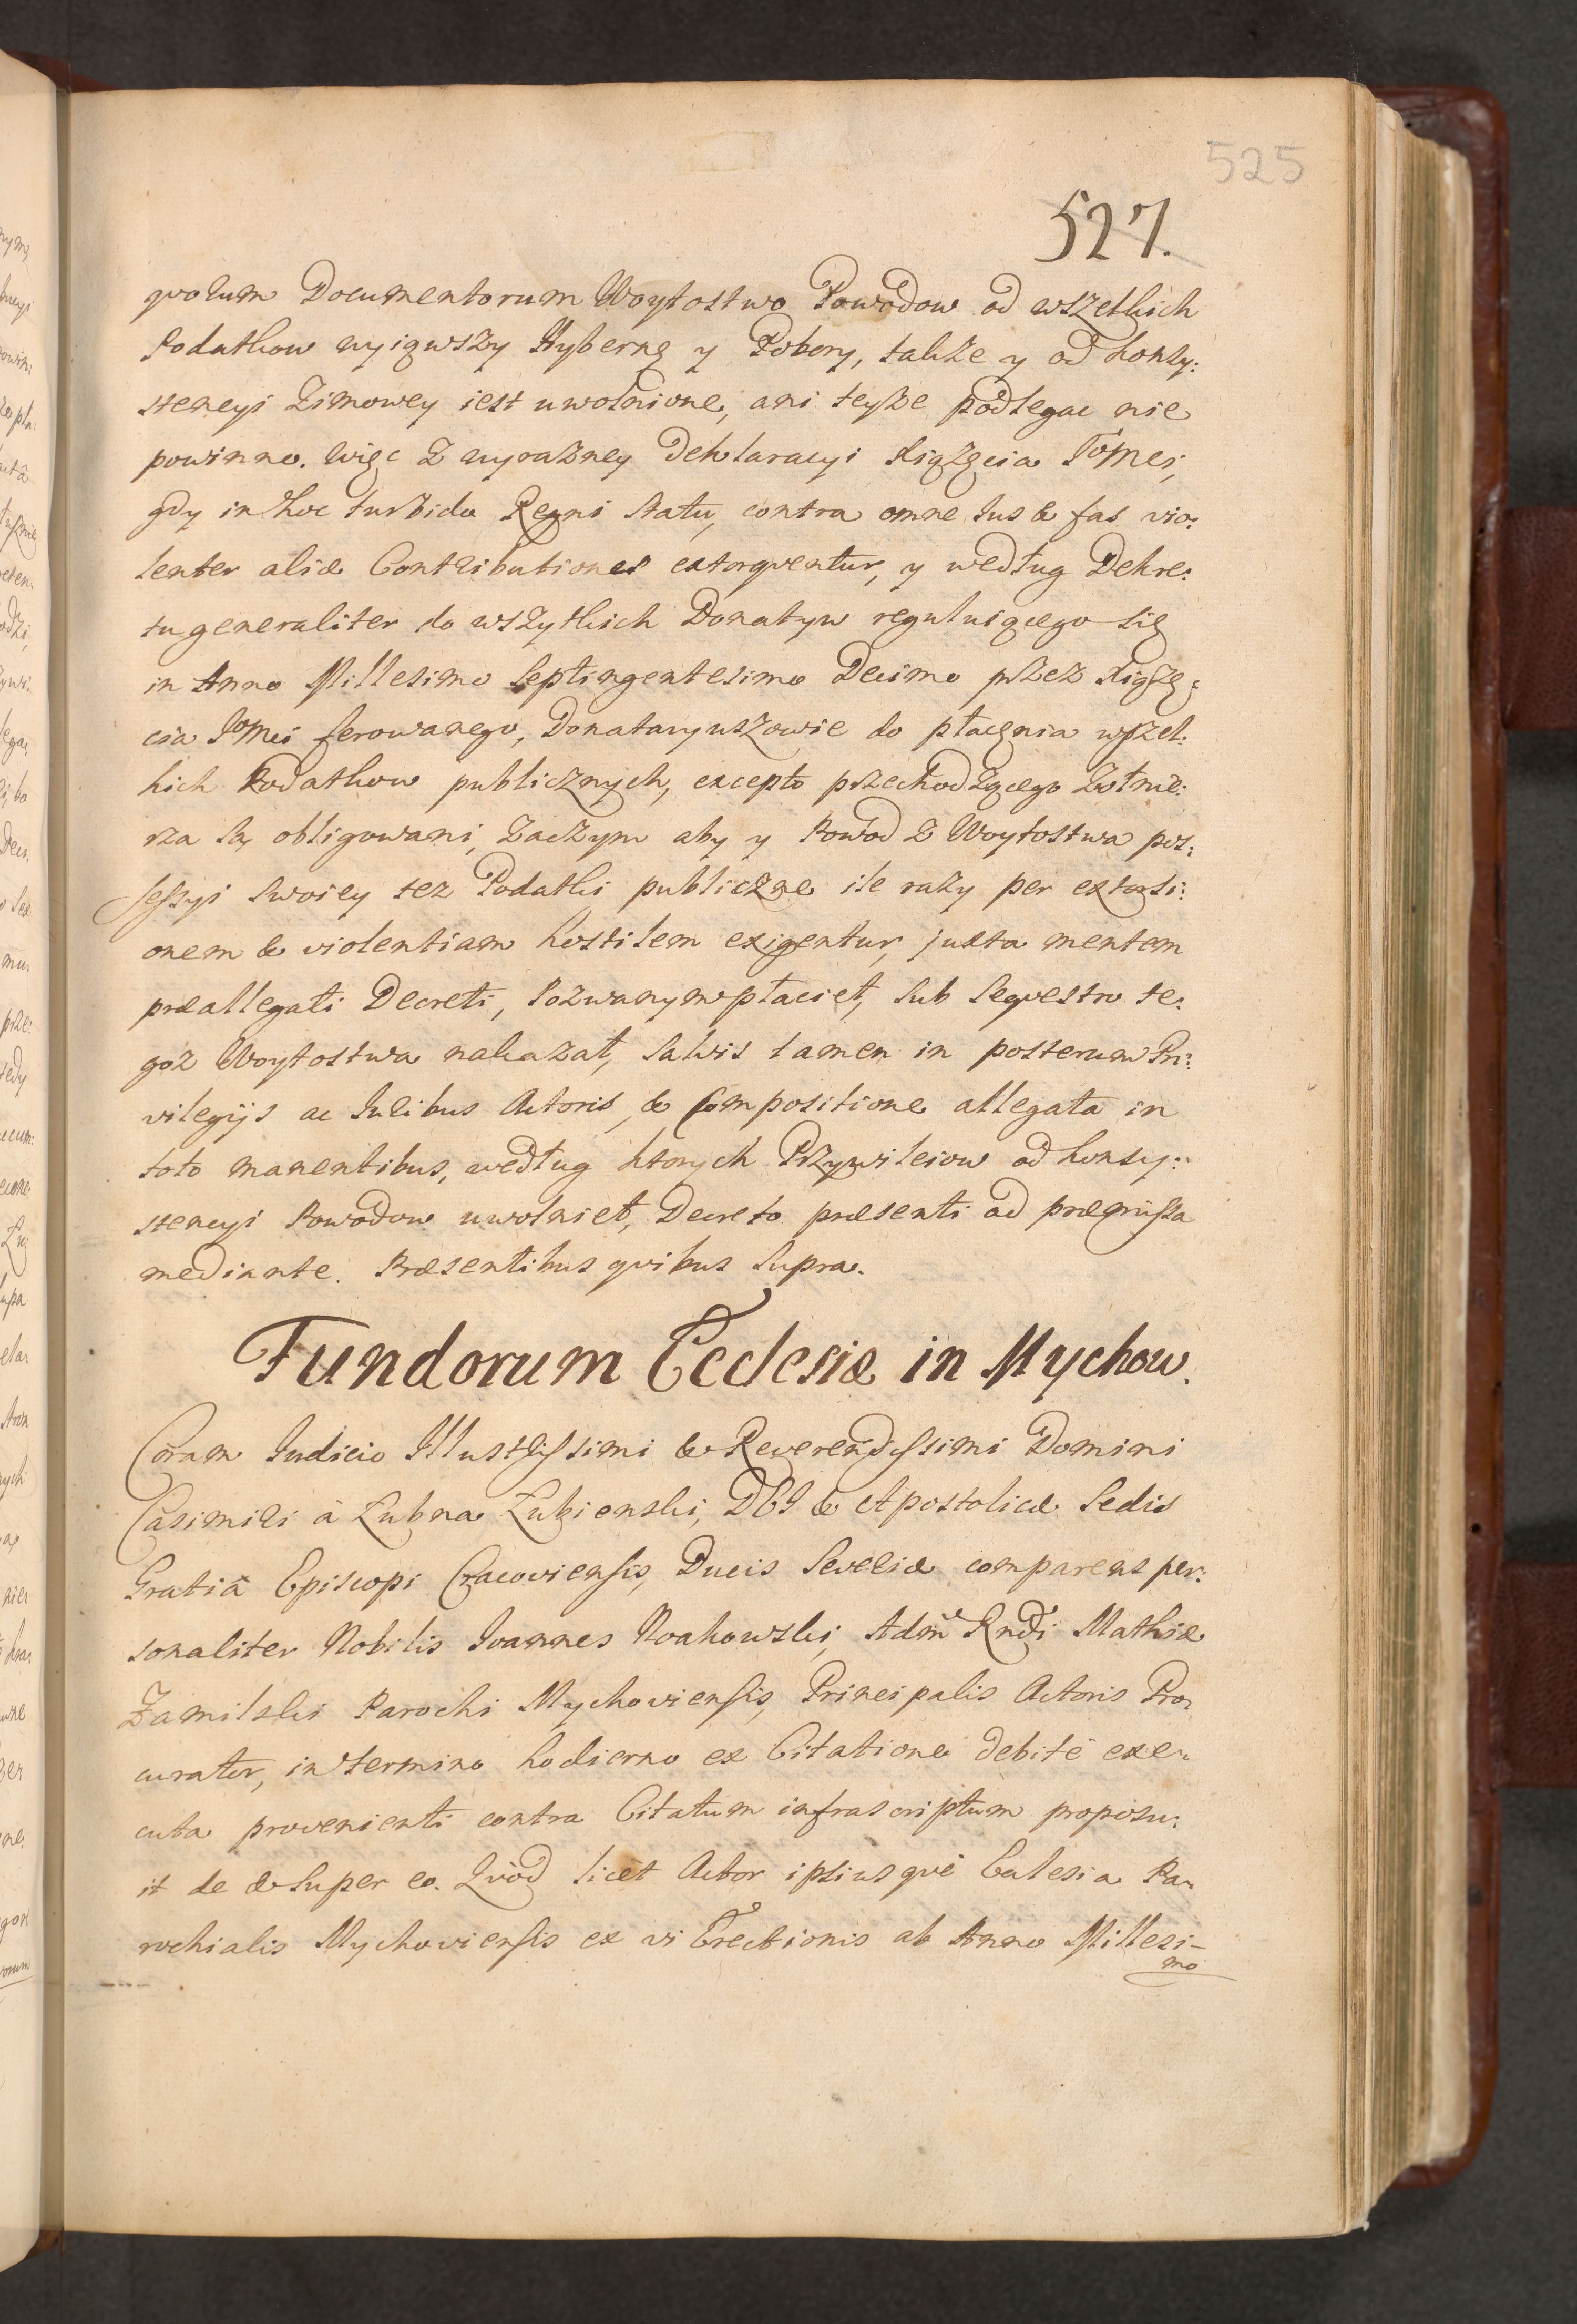 525
527.
quorum Documentorum Woytostwo Powodow od wszelkich
Podatkow wyiąwszy Hybernę y Pobory, także y od konsy:
stencyi Zimowey iest uwolnione, ani teyże podlegac nie
powinno. Więc z wyrazney Deklaracyi Xiążęcia Jomci,
gdy in hoc turbido Regni statu, contra omne Jus & fas vio:
lenter aliæ Contributiones extorqventur, y według Dekre:
tu generaliter do wszytkich Donatyw reguluiącego się
in Anno Millesimo Septingentesimo Decimo przez Xiążę:
cia Jomci ferowanego, Donataryuszowie do płacęnia wszel:
kich Podatkow publicznych, excepto przechodzącego Zołnie:
rza są obligowani, zaczym aby y Powod z Woytostwa pos:
sessyi swoiey tez Podatki publiczne ile razy per extorsi:
onem & violentiam hostilem exigentur, juxta mentem
præallegati Decreti, Pozwanym płacieł, sub Seqvestro te:
goz Woytostwa nakazał, salvis tamen in posterum Pri:
vilegijs ac Juribus Actoris, & Compositione allegata in
toto manentibus, według ktorych Przywileiow od konsy:
stencyi Powodow uwolnieł, Decreto præsenti ad præmissa
mediante. Præsentibus qvibus supra.
Fundorum Ecclesiæ in Mychow.
Coram Judicio Illustrissimi & Reverendissimi Domini
Casimiri à Łubna Łubienski, DEI & Apostolicæ Sedis
Gratiâ Episcopi Cracoviensis, Ducis Severiæ comparens per:
sonaliter Nobilis Joannes Noakowski, Adm Rndi Mathiæ
Zamilski Parochi Mychoviensis, Principalis Actoris Pro:
curator, in termino hodierno ex Citatione debitè exe:
cuta provenienti contra Citatum infrascriptum proposu:
it de & super eo. Qvòd licèt Actor ipsiusqvè Eclesia Pa:
rochialis Mychoviensis ex vi Erectionis ab Anno Millesi-
mo